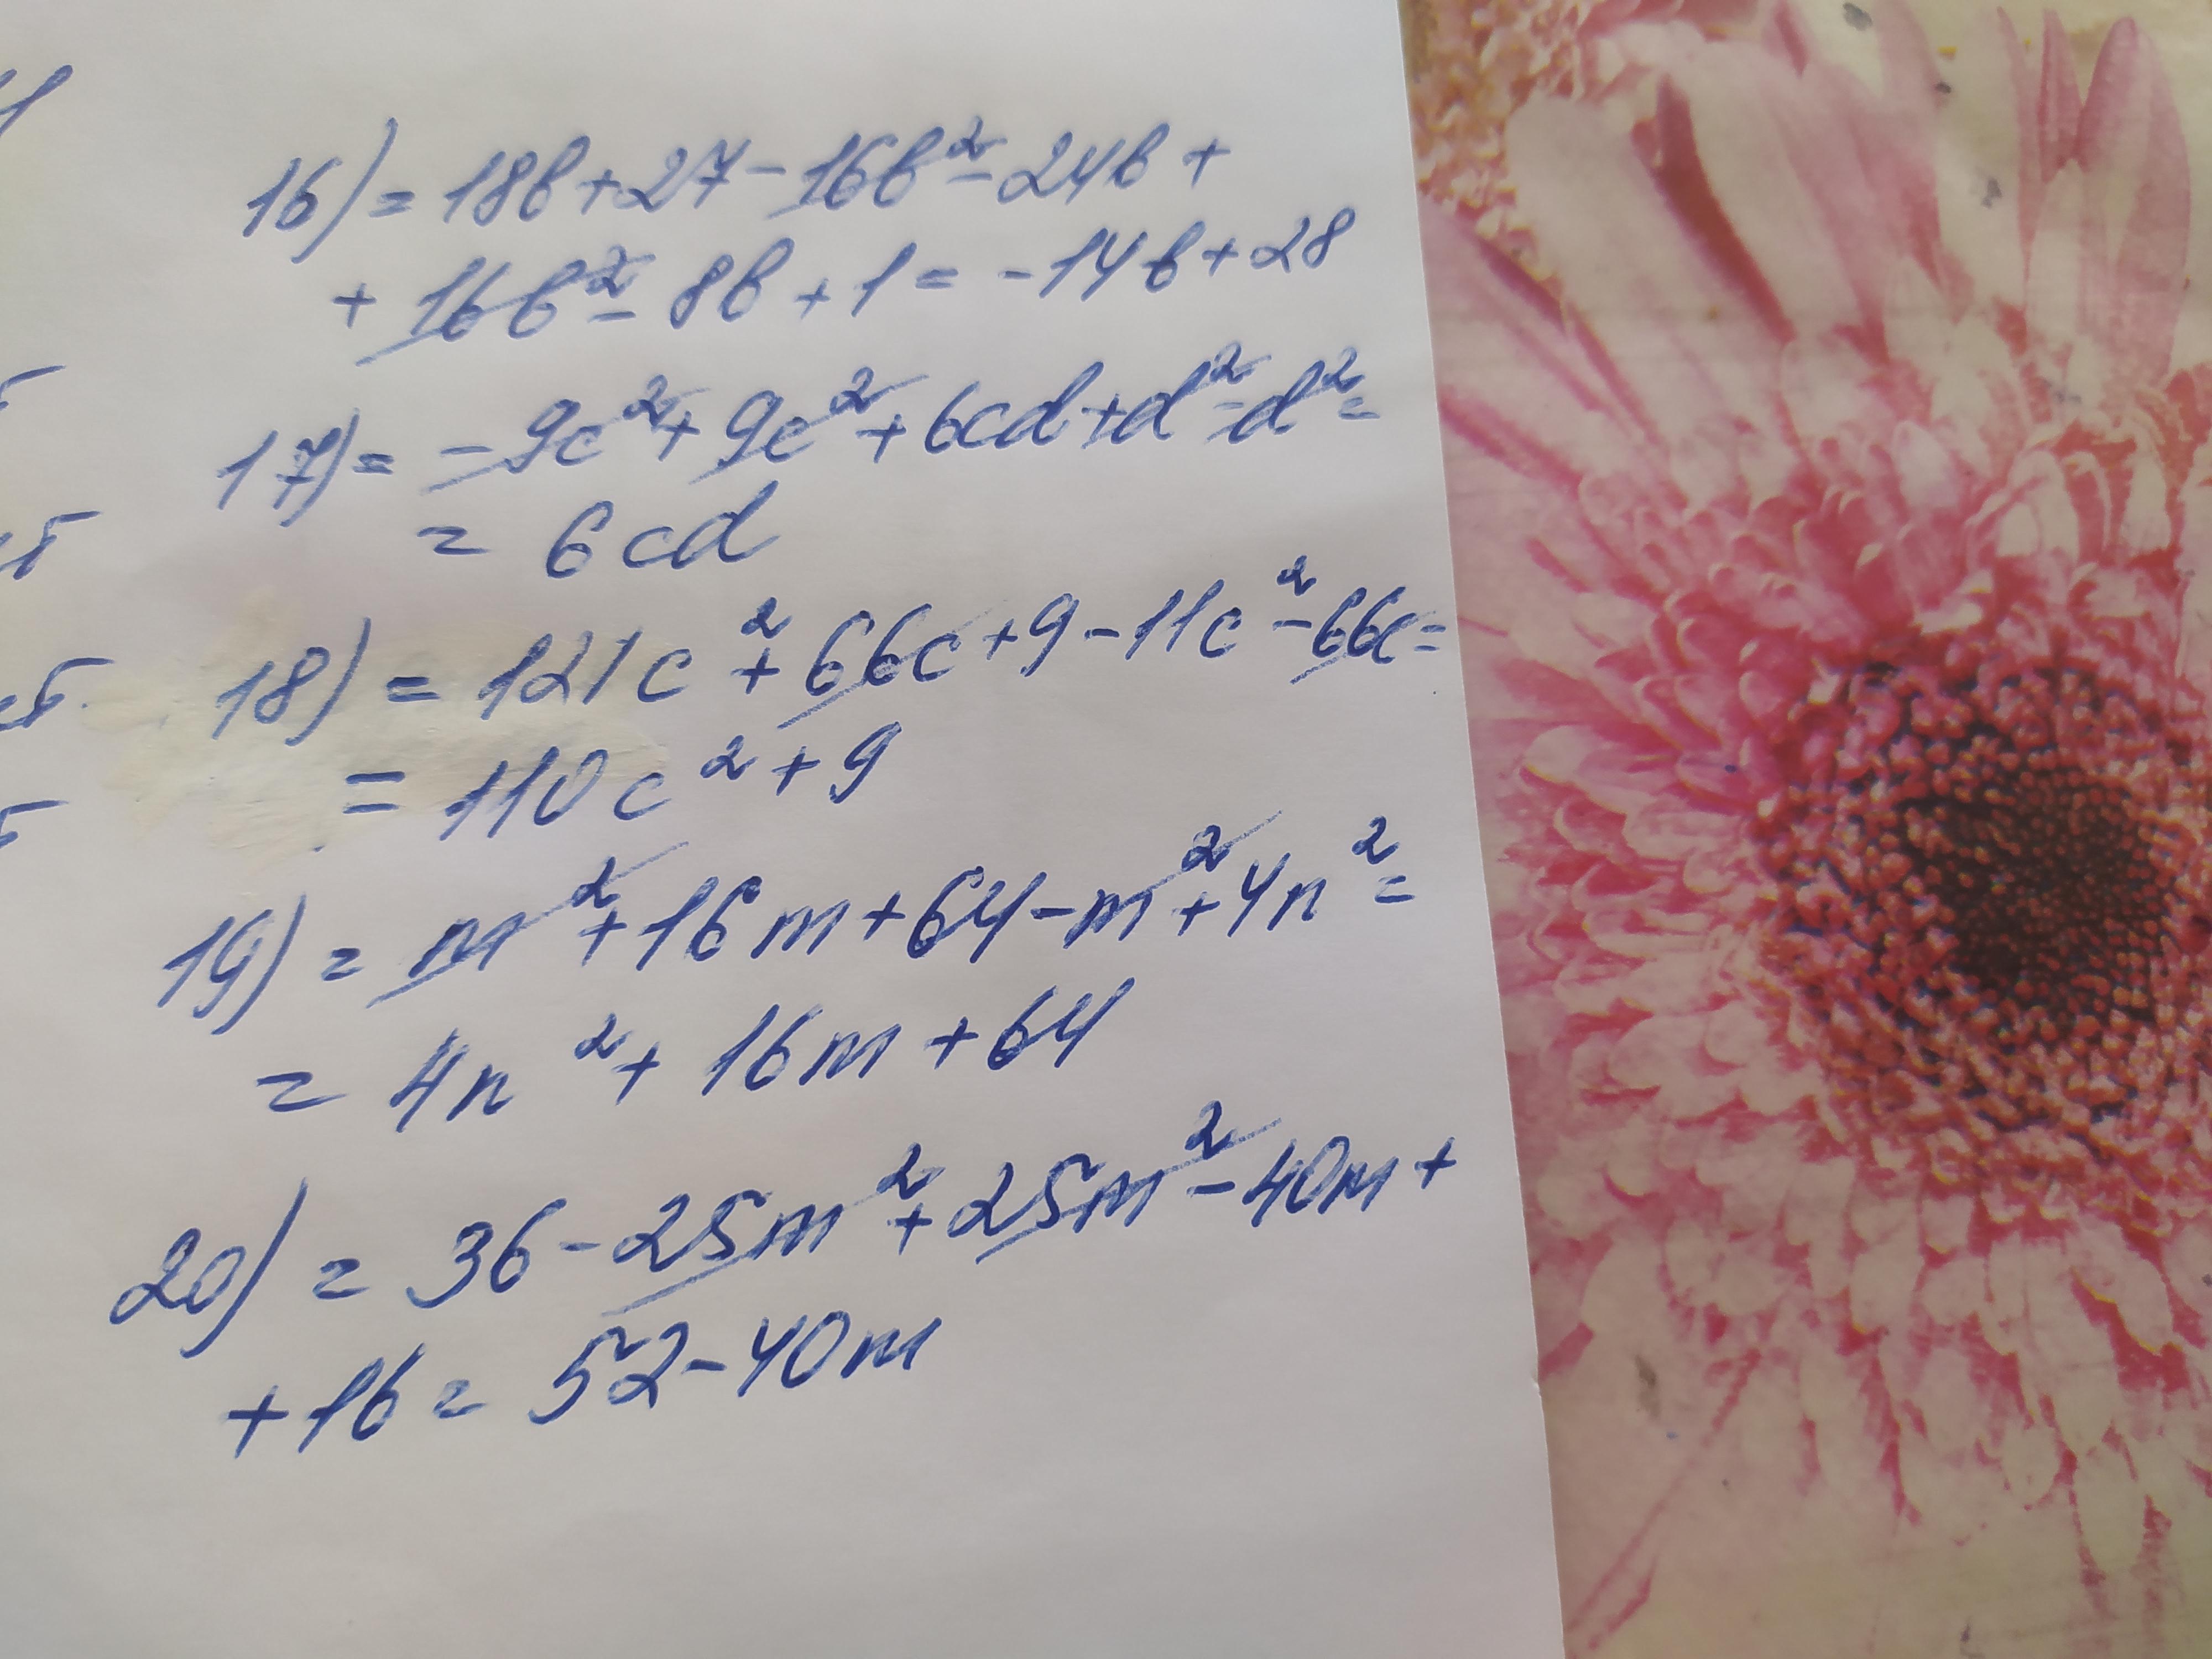 16) = 18b + 27 - 16b² - 24b +
+ 16b² - 8b + 1 = -14b + 28
17) = -9c² + 9c² + 6cd + d² - d² =
= 6cd
18) = 121c² + 66c + 9 - 11c² - 66c =
= 110c² + 9
19) = m² + 16m + 64 - m² + 4n² =
= 4n² + 16m + 64
20) = 36 - 25m² + 25m² - 40m +
+ 16 = 52 - 40m